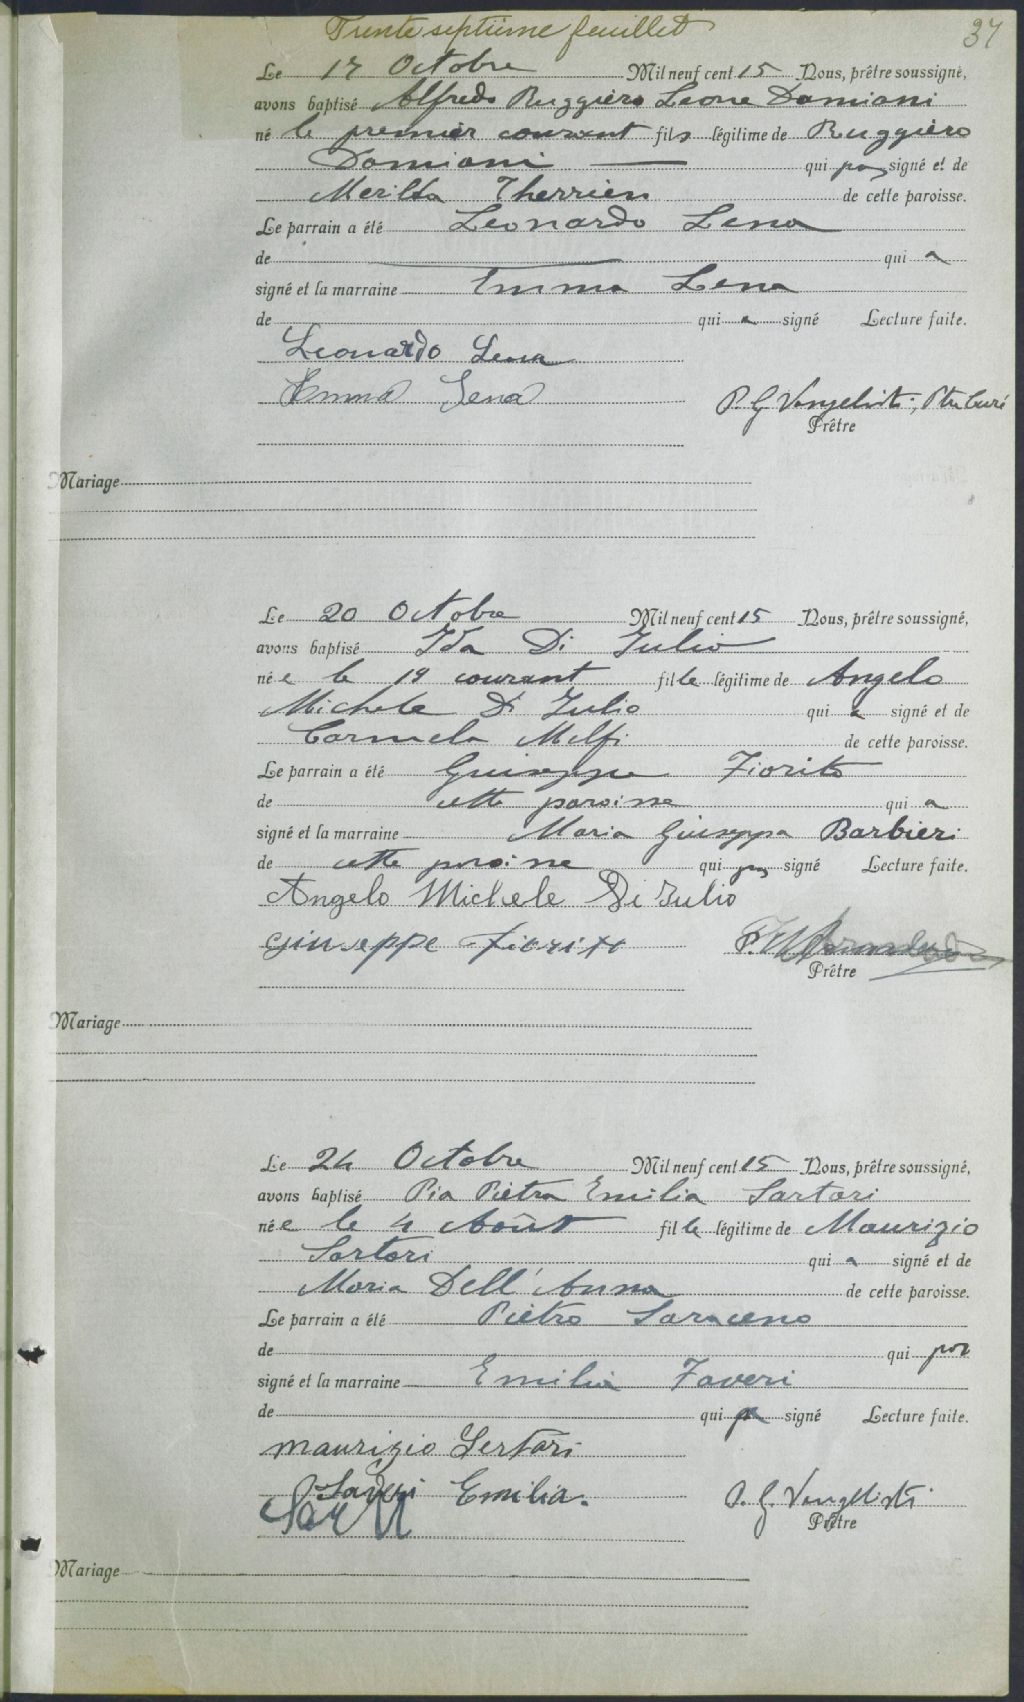 Trente septième feuillet 37
Le 17 Octobre Mil neuf cent 15 Nous, prêtre soussigné,
avons baptisé Alfredo Ruggiero Leone Damiani
né le premier courant fils légitime de Ruggiero
Damiani qui pas signé et de
Merilda Therrien de cette paroisse.
Le parrain a été Leonardo Lena
de qui a
signé et la marraine Emma Lena
de qui a signé Lecture faite.
Leonardo Lena
Emma Lena
P. G. Vangelisti, Ptre Curé
Prêtre
Mariage
Le 20 Octobre Mil neuf cent 15 Nous, prêtre soussigné,
avons baptisé Ida Di Iulio
née le 19 courant fille légitime de Angelo
Michele Di Iulio qui a signé et de
Carmela Melfi de cette paroisse.
Le parrain a été Giuseppe Fiorito
de cette paroisse qui a
signé et la marraine Maria Giuseppa Barbieri
de cette paroisse qui pas signé Lecture faite.
Angelo Michele Di Iulio
Giuseppe Fiorito
Prêtre
Mariage
Le 24 Octobre Mil neuf cent 15 Nous, prêtre soussigné,
avons baptisé Pia Pietra Emilia Sartori
née le 4 Août fille légitime de Maurizio
Sartori qui a signé et de
Maria Dell' Anna de cette paroisse.
Le parrain a été Pietro Saraceno
de qui pas
signé et la marraine Emilia Faveri
de qui a signé Lecture faite.
Maurizio Sertori
Emilia.
P. G. Vangelisti
Prêtre
Mariage